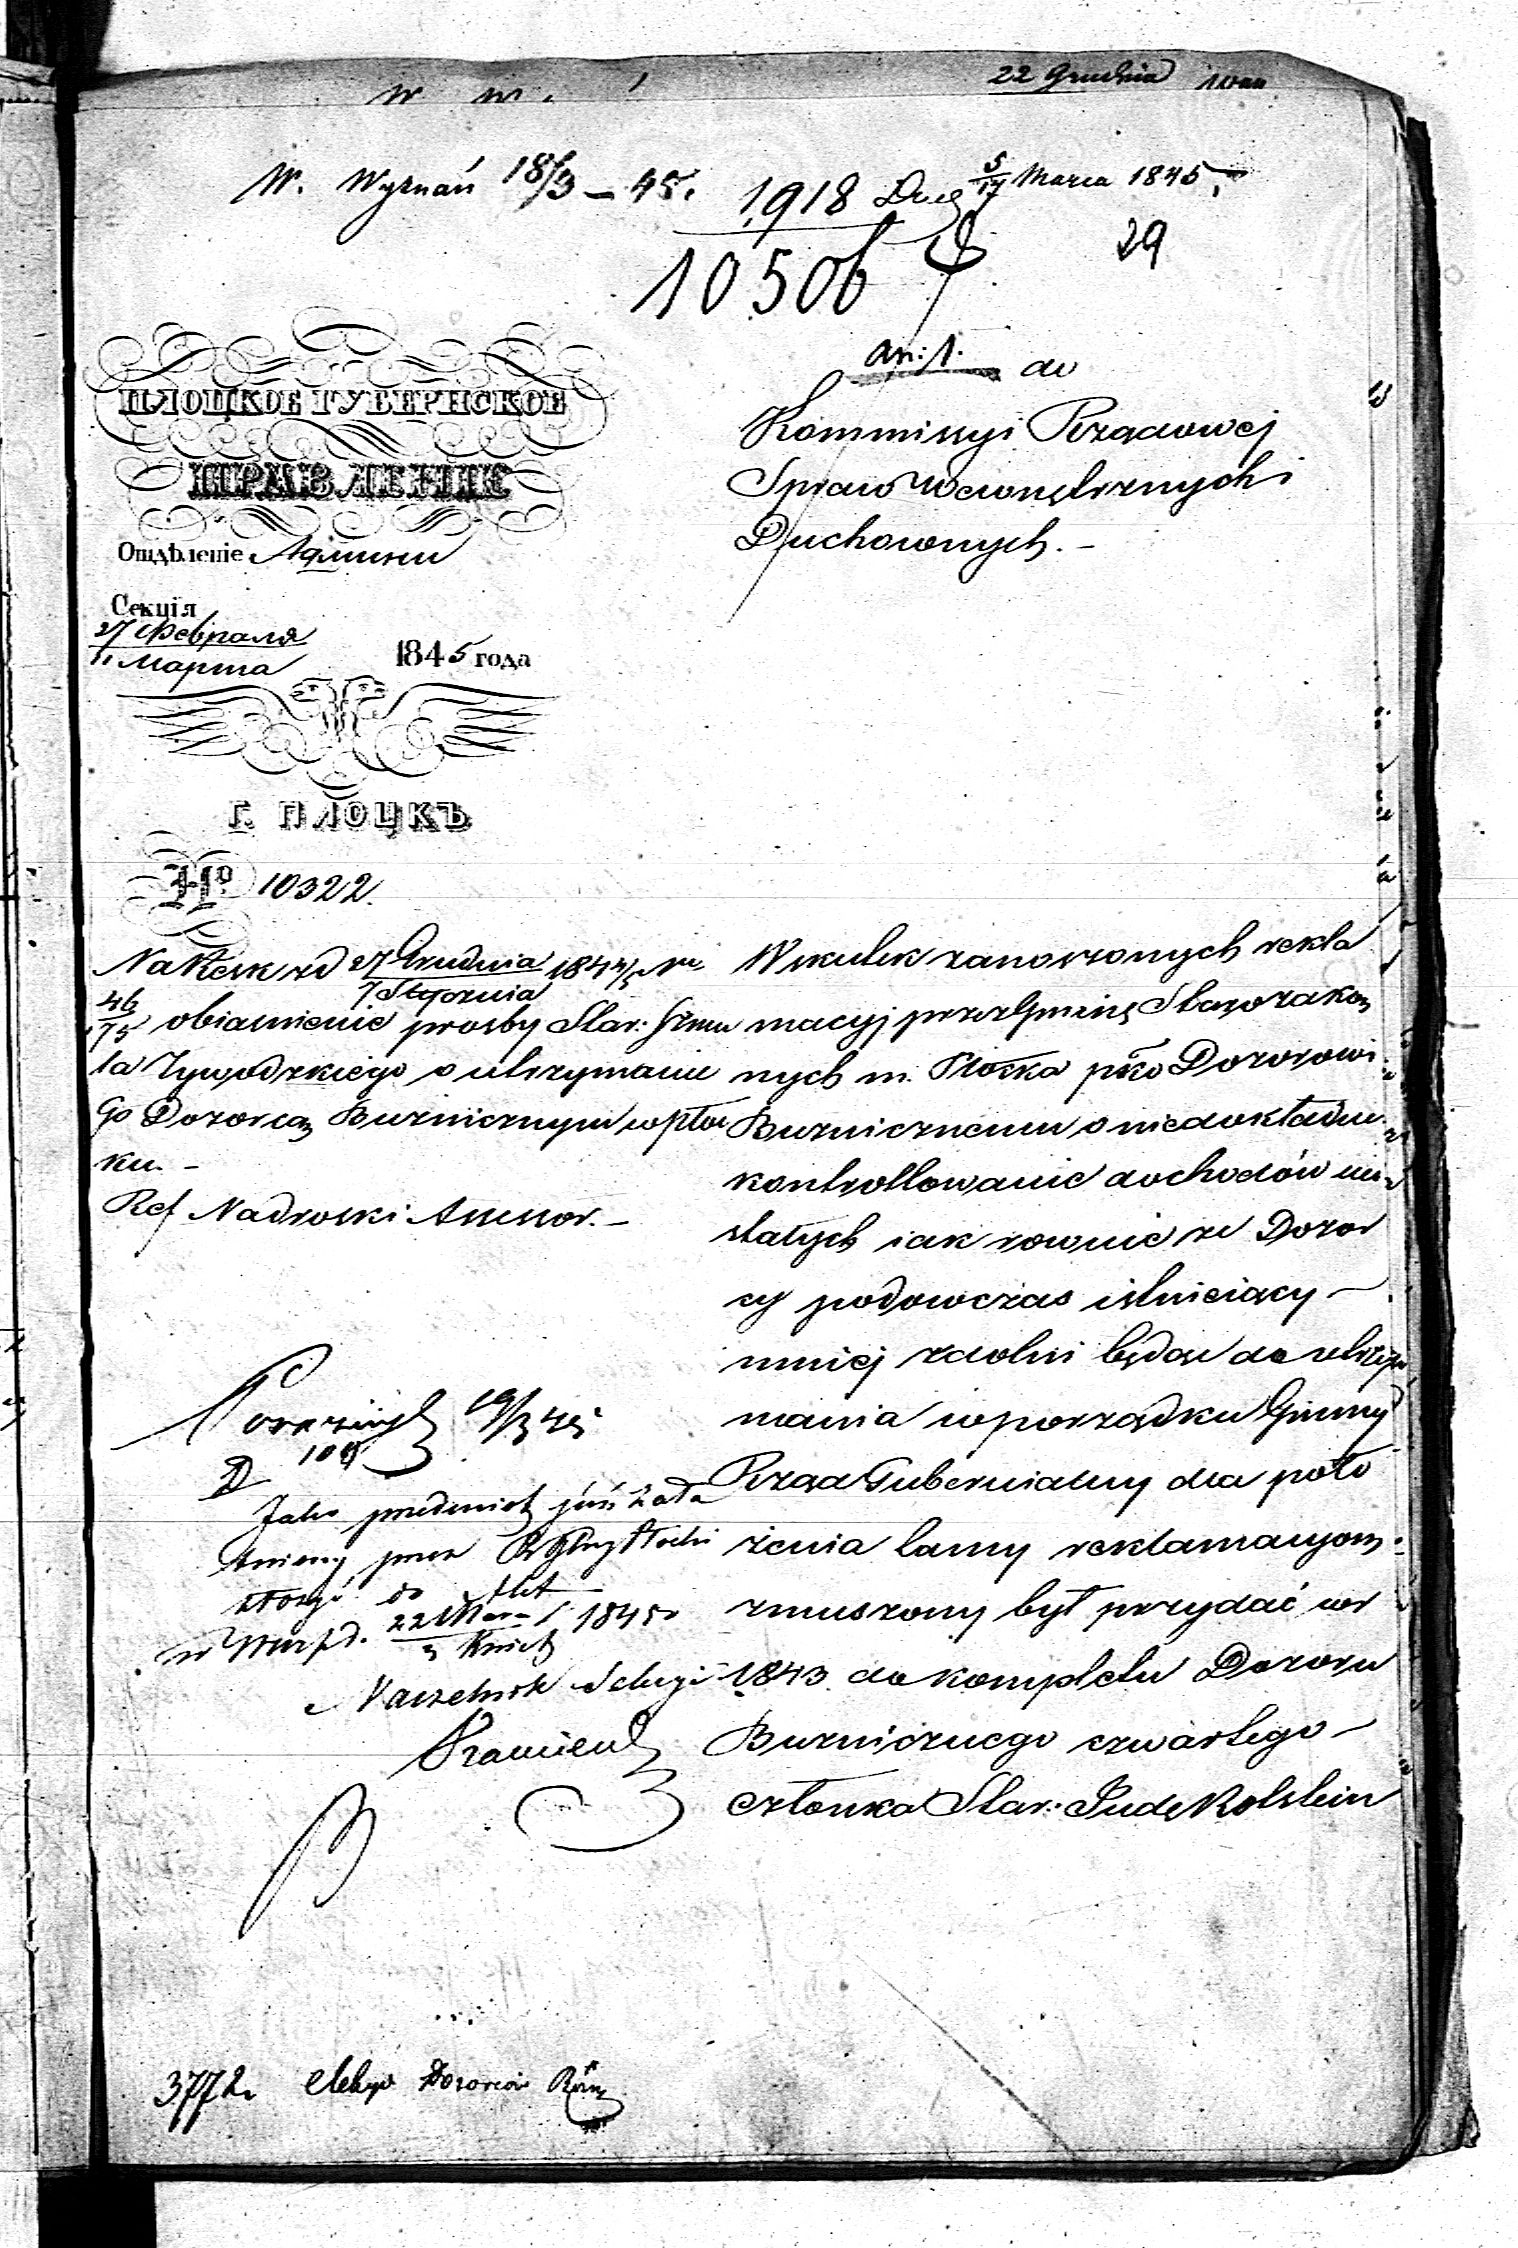 22 Grudnia
W. Wyznań 18/3 – 45. 1918 Dnia 5/17 Marca 1845
29
10506
an: 1.
do
Kommissyi Rządowej
Spraw Wewnętrznych i
Duchownych. –
ПЛОЦКОЕ ГУБЕРНСКОЕ
ПРАВЛЕНІЕ
Отдѣленіе Админи
Секція
27 Февраля
11 Марта 1845 года
Г. ПЛОЦКЪ
No 10322.
Na Resk zd 27 Grudnia 1844/5 Nu
7 Stycznia
46
175 obiasnienie prosby Star: Szmu
la Zywodzkiego o utrzymanie
go Dozorcą Buznicznym w Płoc
ku. –
Ref Nadroski Assessor. –
Wskutek zanoszonych rekla
macyj przez Gminę Starozakon
nych m. Płocka pko Dozorowi
Buznicznemu o niedokładne
kontrollowanie dochodów nie
stałych iak rownie ze Dozor
cy podowczas istnieiący –
mniej zdolni będąc do utrzy
mania w porządku Gminy
Rząd Gubernialny dla poło
żenia tamy reklamacyom
zmuszony był przydać w r
1843. do kompletu Dozoru
Buznicznego czwartego –
członka Star: Jude Kolstein
19/3 45
Jako przedmiot już zała
twiony przez
złożyć do Akt
w Warsz d. 22 Mar 1845
3 Kwiet
Naczelnik Sekcyi
3772. elekcye Dozorców